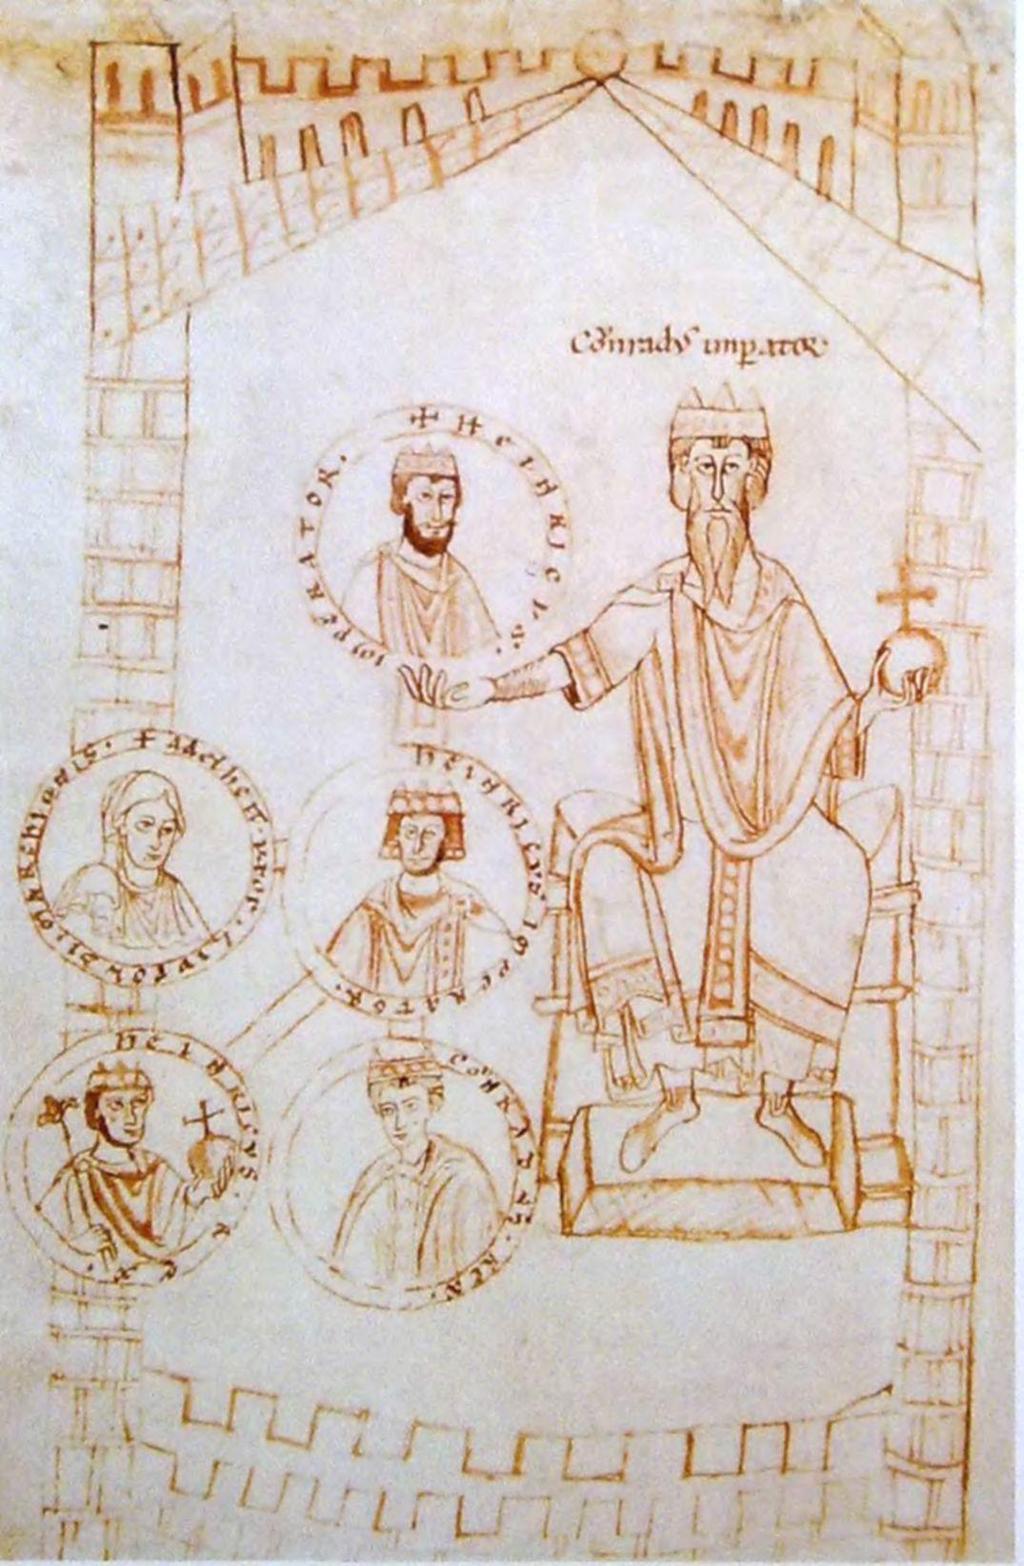 Cōnradꝰ imꝑator
✠ HEINRICVS. IMPERATOR.
✠ Adelheit.
HEINRICVS. IMPERATOR.
HEINRICVS. REX.
CONRADVS. REX.